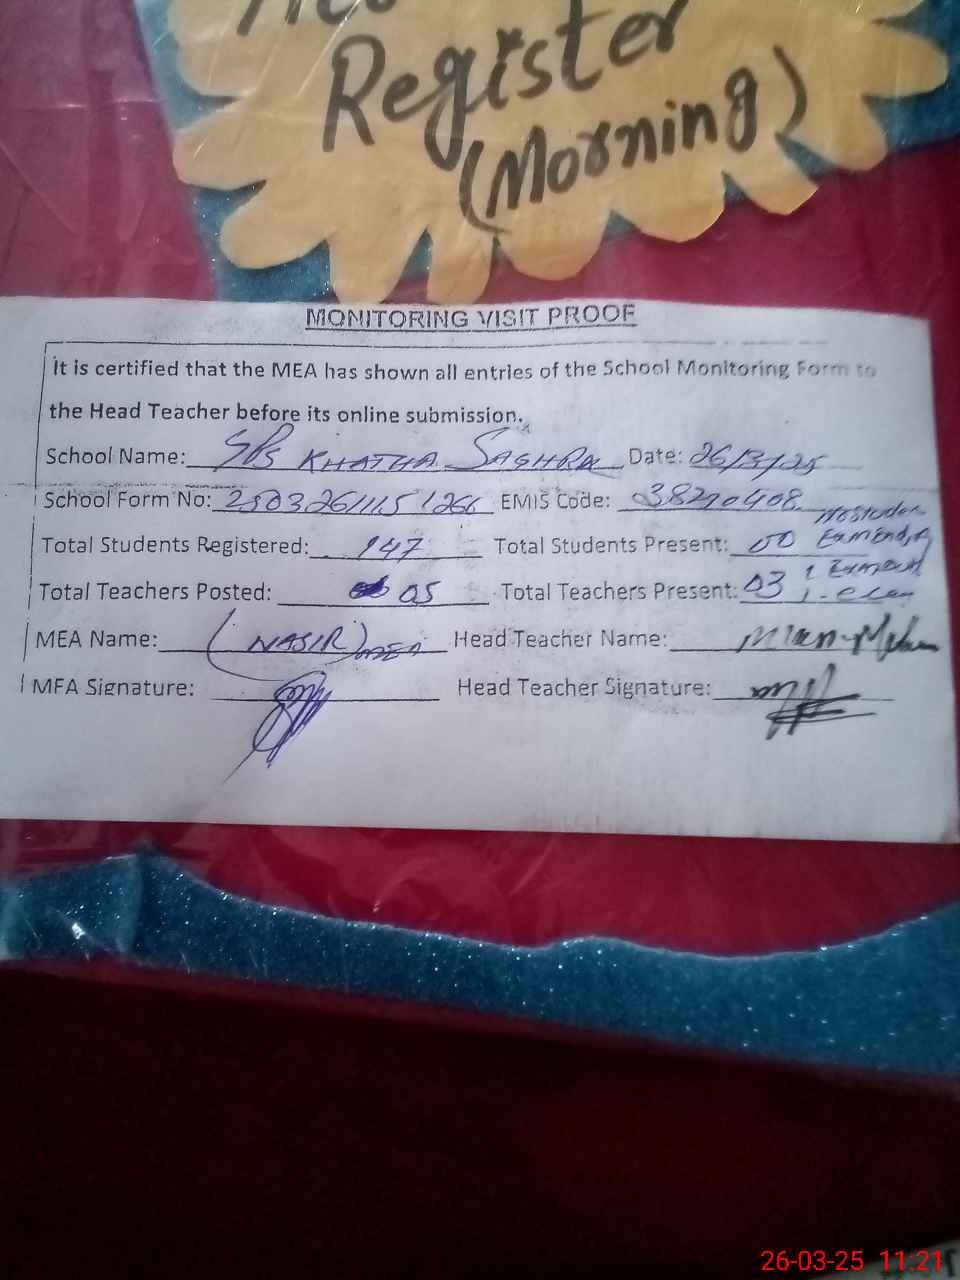 Register
(Morning)
MONITORING VISIT PROOF
It is certified that the MEA has shown all entries of the School Monitoring Form to
the Head Teacher before its online submission.
School Name: GPS KHATHA SAGHRA Date: 26/3/25
School Form No: EMIS Code: 38210408
Total Students Registered: 147 Total Students Present: 00
Total Teachers Posted: 05 Total Teachers Present: 03
MEA Name: (NASIR) MEA Head Teacher Name:
MEA Signature: Head Teacher Signature:
26-03-25 11:21